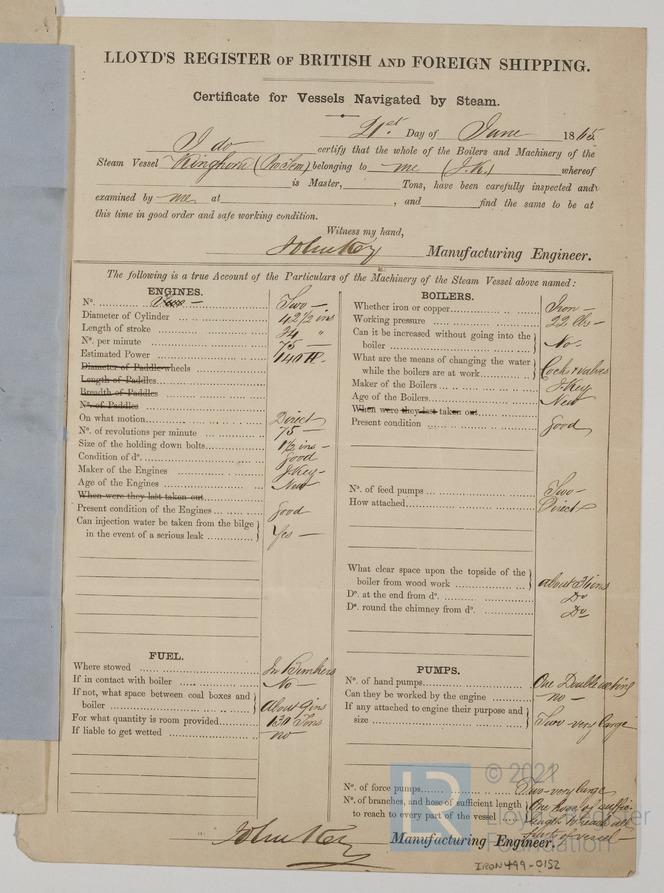 LLOYD'S REGISTER OF BRITISH AND FOREIGN SHIPPING.
Certificate for Vessels Navigated by Steam.
21st Day of June 1865
I do certify that the whole of the Boilers and Machinery of the
Steam Vessel Kinghorn belonging to me (J.K.) whereof
is Master, Tons, have been carefully inspected and
examined by me at , and find the same to be at
this time in good order and safe working condition.
Witness my hand,
John Key Manufacturing Engineer.
The following is a true Account of the Particulars of the Machinery of the Steam Vessel above named:
ENGINES.
No. Two
Diameter of Cylinder 42 1/2 ins
Length of stroke 34 "
No. per minute 75
Estimated Power 140 HP.
Diameter of Paddle-wheels
Length of Paddles
Breadth of Paddles
No. of Paddles
On what motion Direct
No. of revolutions per minute 75
Size of the holding down bolts ins
Condition of do. Good
Maker of the Engines J. Key
Age of the Engines New
When were they last taken out
Present condition of the Engines Good
Can injection water be taken from the bilge
in the event of a serious leak Yes
FUEL.
Where stowed In Bunkers
If in contact with boiler No
If not, what space between coal boxes and
boiler About 9ins
For what quantity is room provided 130 Tons
If liable to get wetted no
BOILERS.
Whether iron or copper Iron
Working pressure 22 lbs
Can it be increased without going into the
boiler No.
What are the means of changing the water
while the boilers are at work Cocks & valves
Maker of the Boilers J. Key
Age of the Boilers New
When were they last taken out
Present condition Good
No. of feed pumps Two
How attached Direct
What clear space upon the topside of the
boiler from wood work about ins
Do. at the end from do. Do
Do. round the chimney from do. Do
PUMPS.
No. of hand pumps One Double acting
Can they be worked by the engine no
If any attached to engine their purpose and
size Two very large
No. of force pumps Two very large
No. of branches, and hose of sufficient length One hose of suffict
to reach to every part of the vessel length to reach all
parts of vessel
John Key Manufacturing Engineer.
IRON499-0152
© 2021
LR
Lloyd's Register
Foundation